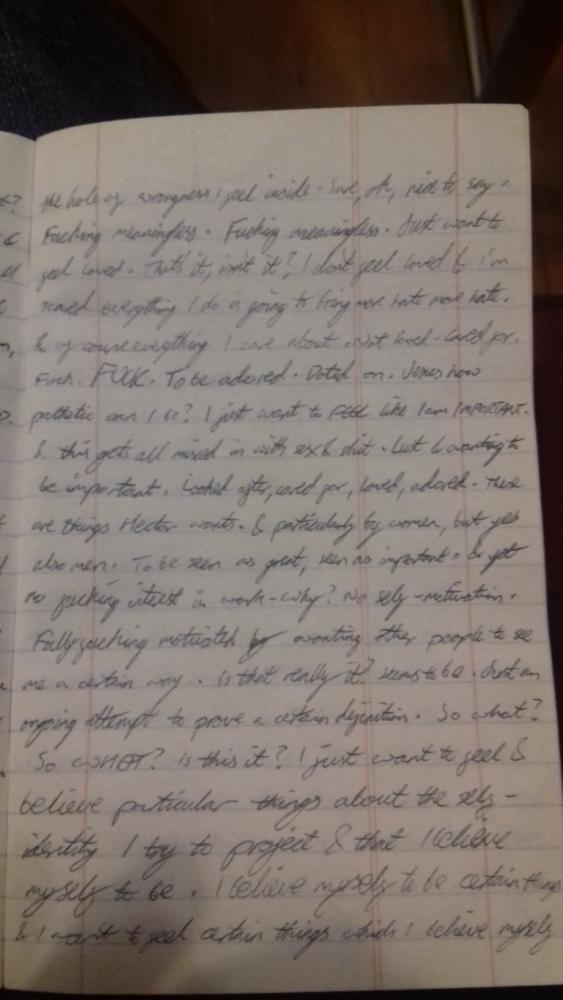 the hole of wrongness i feel inside. Sure, oh, nice to say.
Fucking meaningless. Fucking meaningless. Just want to
feel loved. That's it, isn't it? I don't feel loved & I'm
scared everything I do is going to bring more hate more hate.
& of course everything I care about. Not loved - cared for.
Fuck. FUCK. To be adored. Doted on. Jesus how
pathetic am I be? I just want to FEEL like I am IMPORTANT.
& this gets all mixed in with sex & shit. Lust & wanting to
be important. Looked after, cared for, loved, adored. These
are things Hector wants. & particularly by women, but yes
also men. To be seen as great, seen as important. & yet
no fucking interest in work - why? No self-motivation.
Fully fucking motivated by wanting other people to see
me a certain way. Is that really it? seems to be. Just an
ongoing attempt to prove a certain definition. So what?
So WHAT? Is this it? I just want to feel &
believe particular things about the self -
identity I try to project & that I believe
myself to be. I believe myself to be certain things
& I want to feel certain things which i believe myself